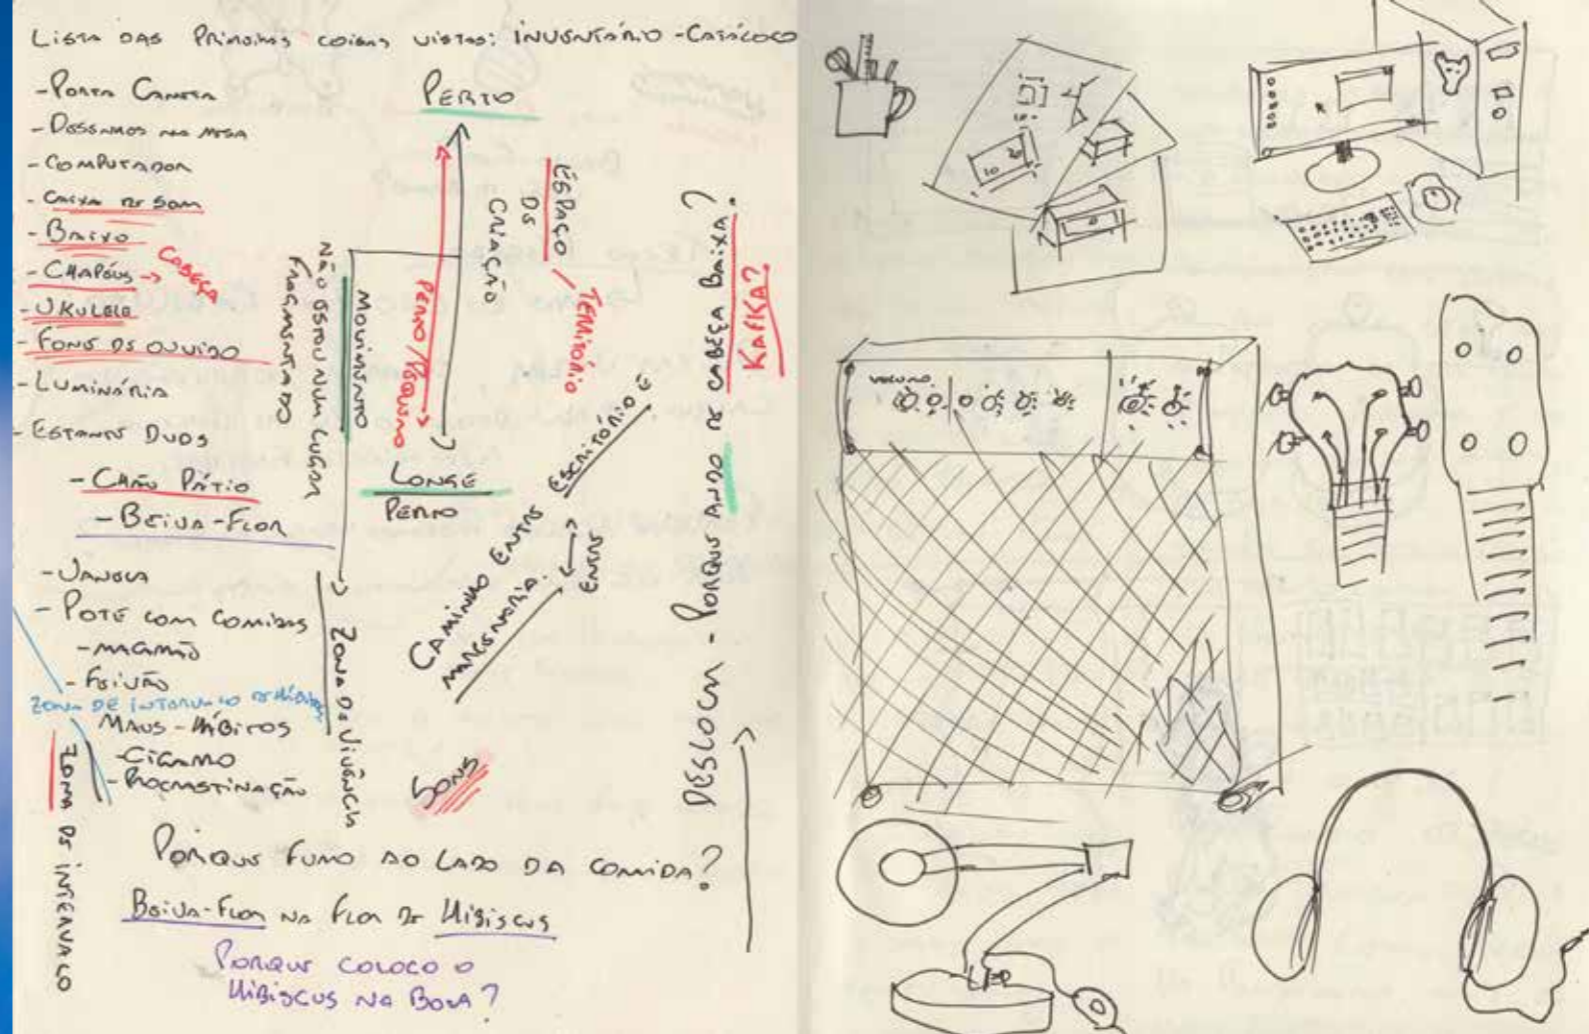 LISTA DAS PRIMEIRAS COISAS VISTAS: INVENTÁRIO - CATÁLOGO
- PORTA CANETA
- DESENHOS NA MESA
- COMPUTADOR
- CAIXA DE SOM
- BAIXO
- CHAPÉUS → CABEÇA
- UKULELE
- FONE DE OUVIDO
- LUMINÁRIA
- ESTANTE DVDS
- CHÃO PÁTIO
- BEIJA-FLOR
- JANELA
- POTE COM COMIDAS
- MACARRÃO
- FEIJÃO
ZONA DE INTERVALO DE
MAUS-HÁBITOS
- CIGARRO
- PROCRASTINAÇÃO
ZONA DE INTERVALO
NÃO ESTOU NUM LUGAR
FRAGMENTADO
MOVIMENTO
ZONA DE VIVÊNCIA
PERTO
PERTO/PEQUENO
LONGE
PERTO
ESPAÇO
DE
CRIAÇÃO
/ TERRITÓRIO
CAMINHO ENTRE ESCRITÓRIO E
MARCENARIA.
ENTRE
SONS
DESLOCAR - PORQUE ANDO DE CABEÇA BAIXA?
KAFKA?
PORQUE FUMO AO LADO DA COMIDA?
BEIJA-FLOR NA FLOR DE HIBISCUS
PORQUE COLOCO O
HIBISCUS NA BOCA?
VOLUME